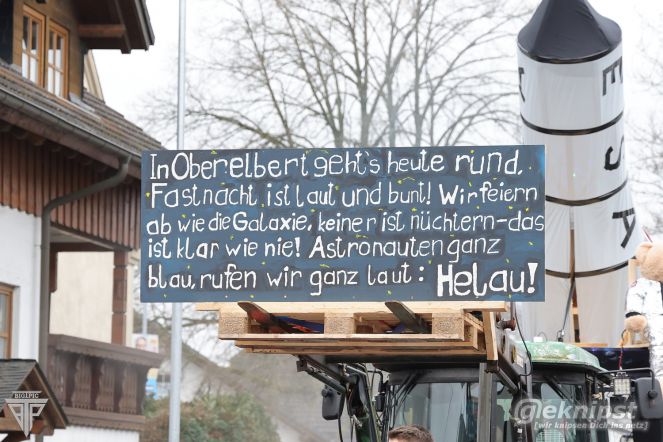 In Oberelbert geht's heute rund,
Fastnacht ist laut und bunt! Wir feiern
ab wie die Galaxie, keiner ist nüchtern-das
ist klar wie nie! Astronauten ganz
blau, rufen wir ganz laut: Helau!
ESA
BIG1PIC
@eknipst
[wir knipsen Dich ins netz]